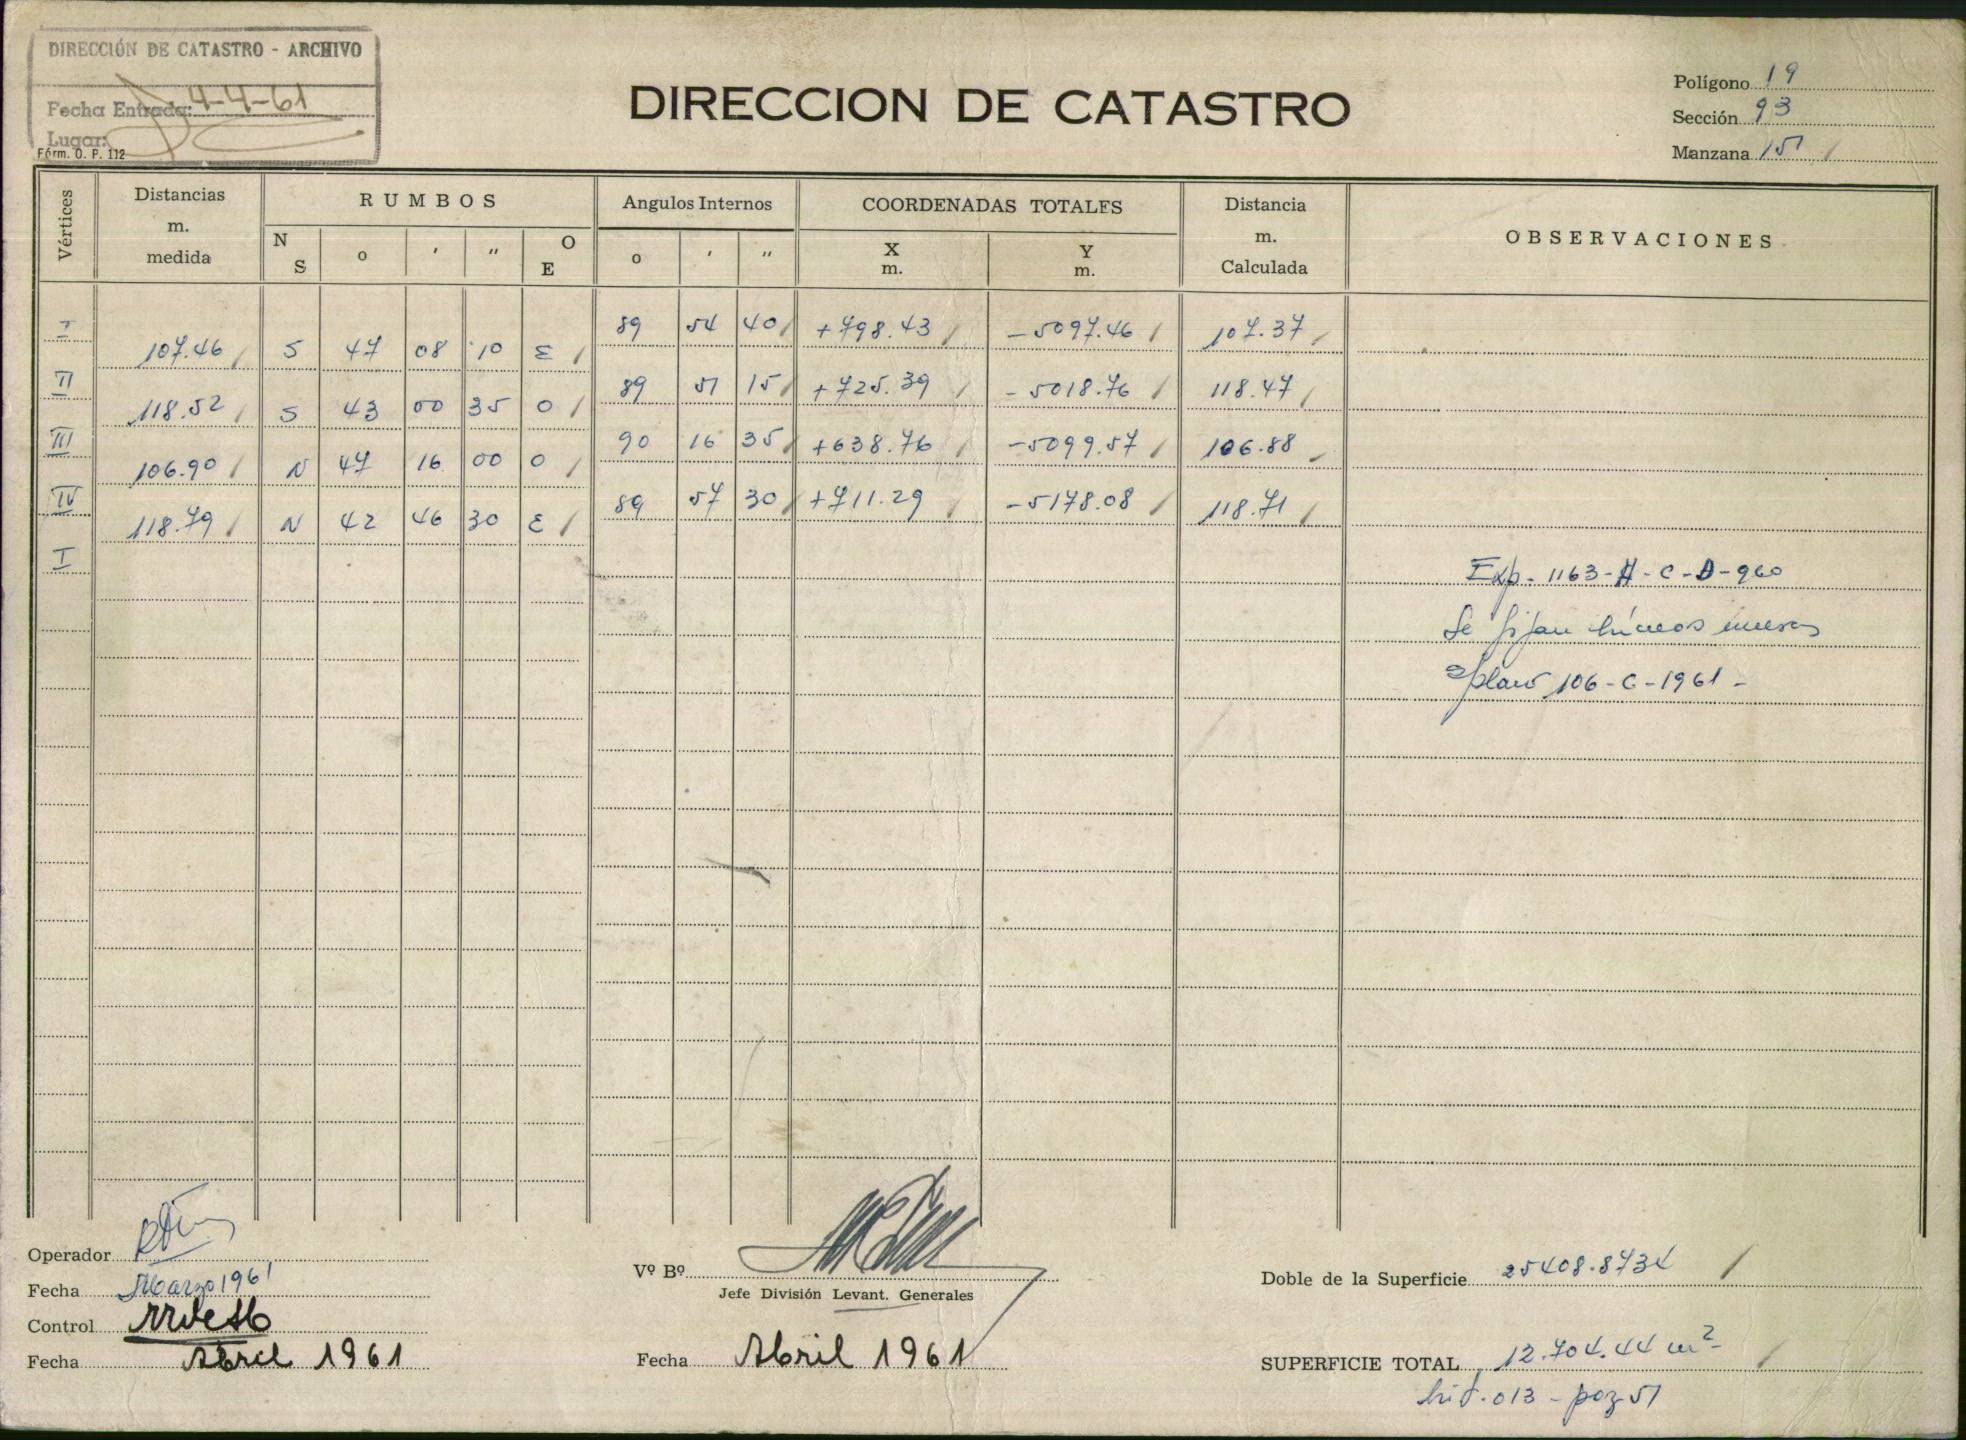 DIRECCIÓN DE CATASTRO - ARCHIVO
Fecha Entrada: 4-4-61
Lugar:
Fórm. O. P. 112
DIRECCION DE CATASTRO
Polígono 19
Sección 93
Manzana 151
Vértices
Distancias m. medida
RUMBOS
N S o ' " O E
Angulos Internos
o ' "
COORDENADAS TOTALES
X m. Y m.
Distancia m. Calculada
OBSERVACIONES
I 89 54 40 +798.43 -5097.46 107.37
107.46 S 47 08 10 E
II 89 51 15 +725.39 -5018.76 118.47
118.52 S 43 00 35 O
III 90 16 35 +638.76 -5099.57 106.88
106.90 N 47 16 00 O
IV 89 57 30 +711.29 -5178.08 118.71
118.79 N 42 46 30 E
I
Exp. 1163-H-C-D-960
Se fijan líneas
plano 106-C-1961-
Operador
Fecha Marzo 1961
Control
Fecha Abril 1961
Vº Bº
Jefe División Levant. Generales
Fecha Abril 1961
Doble de la Superficie 25408.8734
SUPERFICIE TOTAL 12.704.44 m2
013 - poz 51